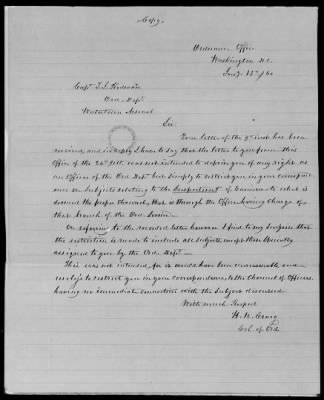 Copy.
Ordnance Office
Washington D.C.
Jany. 12th/60
Capt. T. J. Rodman
Ord. Dept.
Watertown Arsenal
Sir:
Your letter of the 9th inst has been
received, and in reply I have to say that the letter to you from this
Office of the 24th Ult. was not intended to deprive you of any right as
an Officer of the Ord. Dept but simply to restrict you in your correspond-
ence on Subjects relating to the Inspection of Cannon to what is
deemed the proper channel, that is through the Officer having charge of
that branch of the Ord. Service.
On referring to the recorded letter however I find to my surprise that
the restriction is made to include all subjects, except those specially
assigned to you by the Ord. Dept.
This was not intended, for it would have been unreasonable and
unjust to restrict you in your correspondence, to the channel of Officers
having no immediate connection with the Subject discussed
With much Respect
H. K. Craig
Col. of Ord.